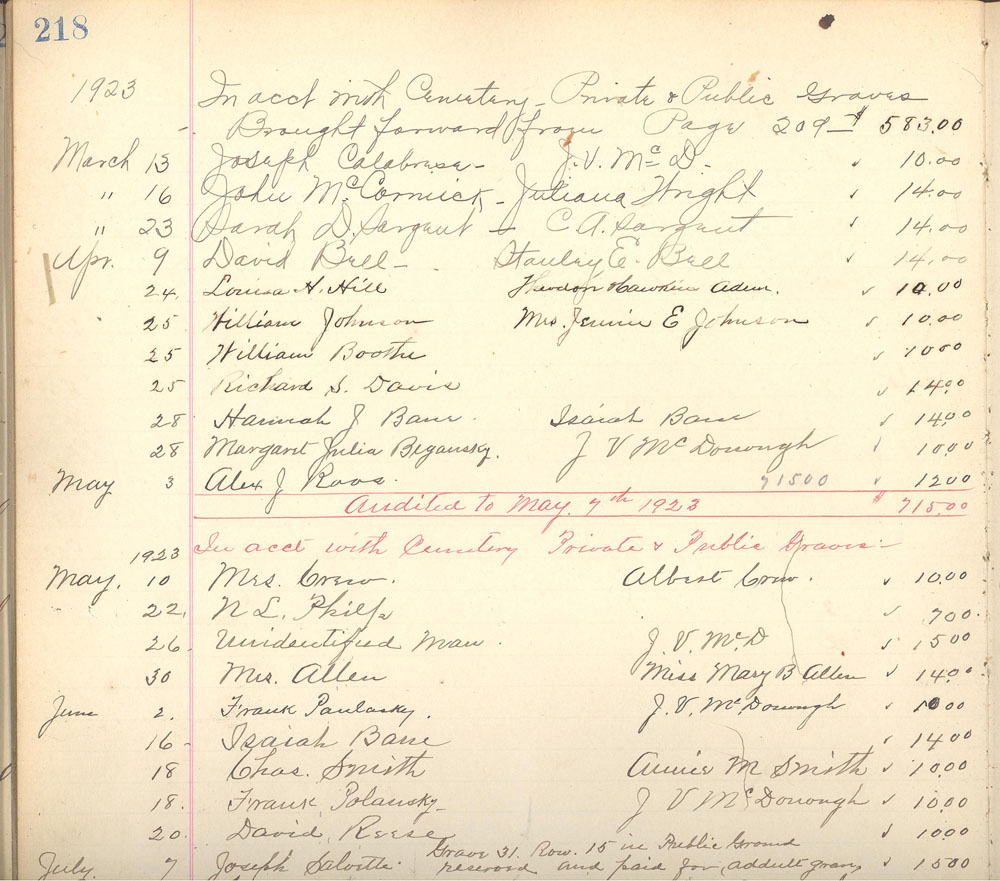 218
1923 In acct with Cemetery - Private & Public Graves
Brought forward from Page 209 - $ 583.00
March 13 Joseph Calabrese - J. V. McD. ✓ 10.00
" 16 John McCormick - Juliana Wright ✓ 14.00
" 23 Sarah D. Sargent - C. A. Sargent ✓ 14.00
Apr. 9 David Bell - Stanley E. Bell ✓ 14.00
24. Louisa H. Hill Hawkins Adm. ✓ 10.00
25 William Johnson Mrs. Jennie E Johnson ✓ 10.00
25 William Boothe ✓ 10 00
25 Richard S. Davis ✓ 14.00
28 Hannah J Bane. Isaiah Bane ✓ 14.00
28 Margaret Julia Begansky. J V McDonough ✓ 10.00
May 3 Alex J Roos. 71500 ✓ 12 00
Audited to May. 7th 1923 $ 715.00
1923 In acct with Cemetery Private & Public Graves -
May. 10 Mrs. Crew. Albert Crew. ✓ 10.00
22. N L. Philps ✓ 7 00.
26. Unidentified Man. J. V. McD ✓ 15 00
30 Mrs. Allen Miss Mary B Allen ✓ 14.00
June 2. Frank Paulasky. J. V. McDonough ✓ 10 00
16 - Isaiah Bane ✓ 14 00
18 Chas. Smith Annie M Smith ✓ 10.00
18. Frank Polansky - J V McDonough ✓ 10.00
20. David Reese ✓ 10 00
Grave 31. Row. 15 in Public Ground
July. 7 Joseph Salvitti. reserved and paid for, addult grave ✓ 15 00